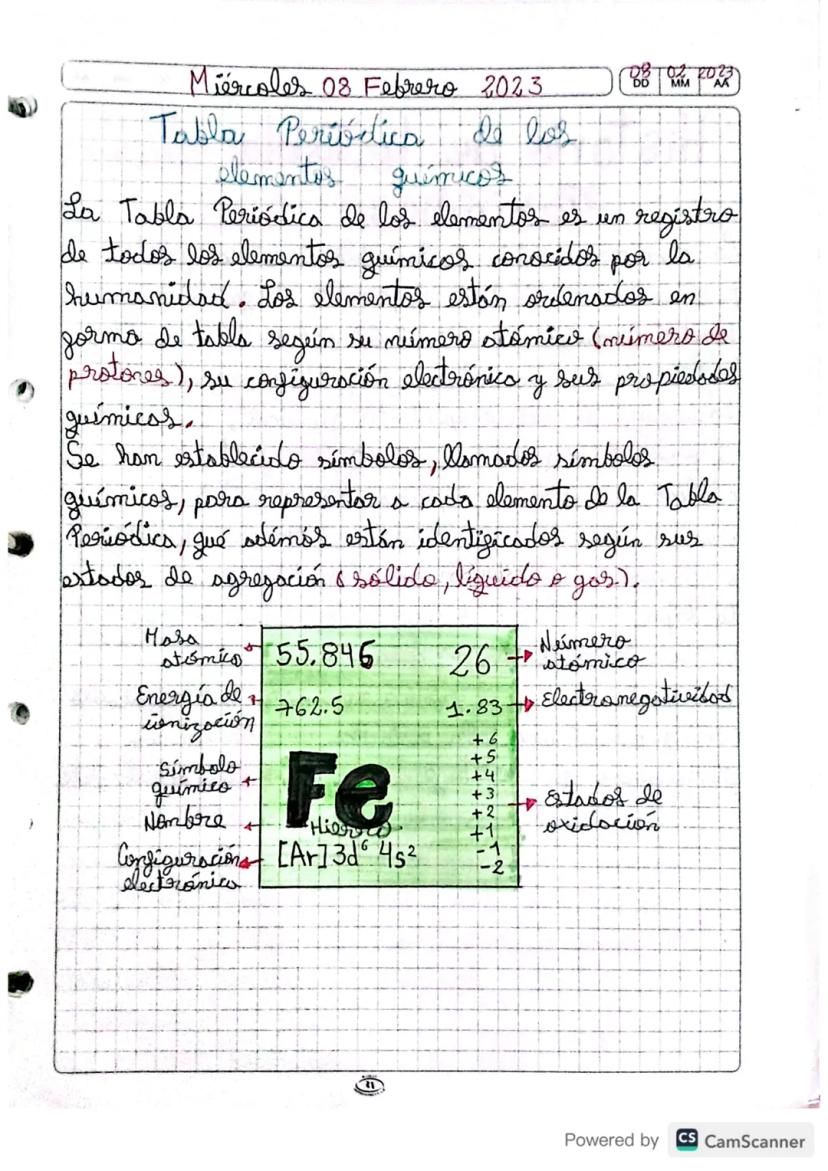 Miércoles 08 Febrero 2023
08 02 2023
DD MM AA
Tabla Periódica de los
elementos químicos
La Tabla Periódica de los elementos es un registro
de todos los elementos químicos conocidos por la
humanidad. Los elementos están ordenados en
forma de tabla según su número atómico (número de
protones), su configuración electrónica y sus propiedades
químicas.
Se han establecido símbolos, llamados símbolos
químicos, para representar a cada elemento de la Tabla
Periódica, qué además están identificados según sus
estados de agregación (sólido, líquido o gas).
Masa
atómica
55.846
26
Número
atómico
Energía de
ionización
762.5
1.83
Electronegatividad
+6
+5
+4
+3
+2
+1
-1
-2
Estados de
oxidación
Símbolo
químico
Fe
Nombre
Hierro
Configuración
electrónica
[Ar] 3d⁶ 4s²
Powered by CS CamScanner